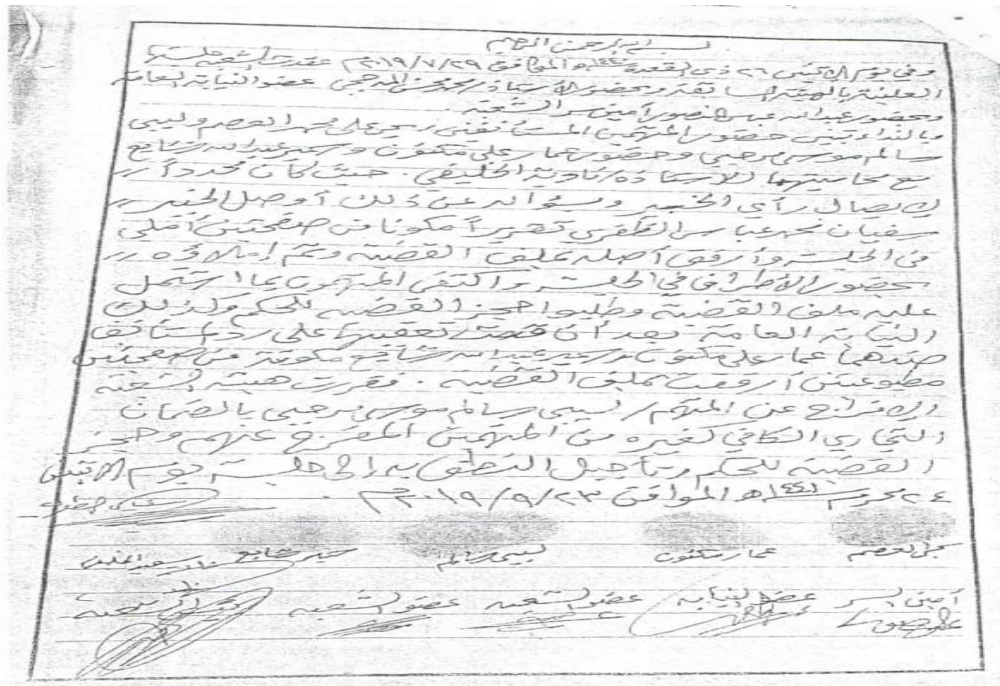 بسم الله الرحمن الرحيم
وفي يوم الاثنين ٢٦ ذي القعدة ١٤٤٠هـ الموافق ٢٠١٩/٧/٢٩م عقدت الشعبة جلستها
العلنية بالهيئة السابقة وبحضور الأستاذ/ عضو النيابة العامة
وبحضور عبدالله أمين سر الشعبة
وبالنداء تبين حضور المتهمين المستأنفين جبر علي محمد العصم ولبيبي
سالم موسى مرحبي وحضور عمار علي مكنون وسمير عبدالله شايع
مع محاميتهما الأستاذة/ الخليفي. حيث كان محدداً //
لإيصال رأي الخبير وبسؤاله عن ذلك أوصل الخبير //
سفيان محمد عباس تقريراً مكوناً من صفحتين أملي
في الجلسة وأرفق أصله بملف القضية وتم إتلاؤه //
بحضور الأطراف في الجلسة واكتفى المتهمون بما اشتمل
عليه ملف القضية وطلبوا حجز القضية للحكم وكذلك
النيابة العامة بعد أن قدمت تعقيبها على
ضدهما عمار علي مكنون وسمير عبدالله شايع مكونة من صفحتين
مطبوعتين أرفقت بملف القضية. فقررت هيئة الشعبة
الافراج عن المتهم/ لبيبي سالم موسى مرحبي بالضمان
التجاري الكافي كغيره من المتهمين المفرج عنهم وحجز
القضية للحكم وتأجيل النطق به إلى جلسة يوم الاثنين
٢٤ محرم ١٤٤١هـ الموافق ٢٠١٩/٩/٢٣م
العصم عمار مكنون لبيبي سالم سمير شايع
أمين السر عضو النيابة عضو الشعبة عضو الشعبة رئيس الشعبة